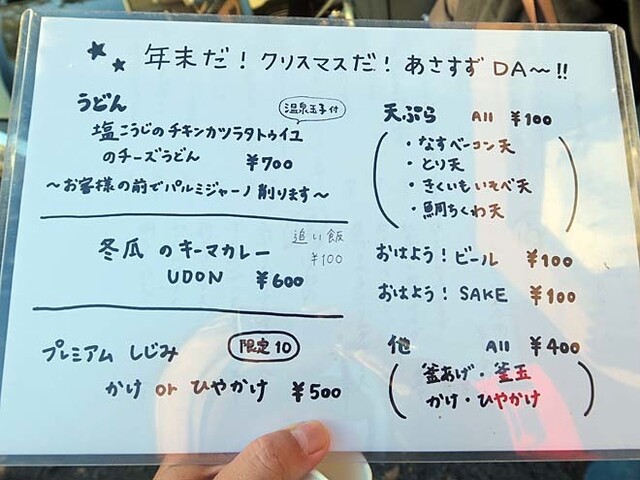 年末だ！クリスマスだ！あさすずDA〜!!
うどん
温泉玉子付
塩こうじのチキンカツラタトゥイユ
のチーズうどん ¥700
〜お客様の前でパルミジャーノ削ります〜
冬瓜のキーマカレー
UDON ¥600
追い飯
¥100
プレミアム しじみ
限定10
かけ or ひやかけ ¥500
天ぷら All ¥100
・なすベーコン天
・とり天
・きくいもいそべ天
・鯛ちくわ天
おはよう！ビール ¥100
おはよう！SAKE ¥100
他 All ¥400
釜あげ・釜玉
かけ・ひやかけ